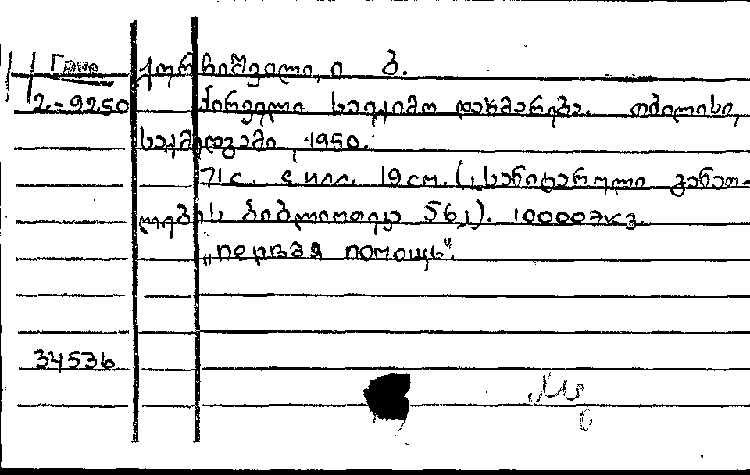 ი. ბ.
2-9250 პირველი საექიმო დახმარება. თბილისი,
საქმედგამი, 1950.
71 с. с илл. 19 см. (სანიტარული განათ-
ლების ბიბლიოთეკა 56,). 10000 экз.
„Первая помощь".
34536